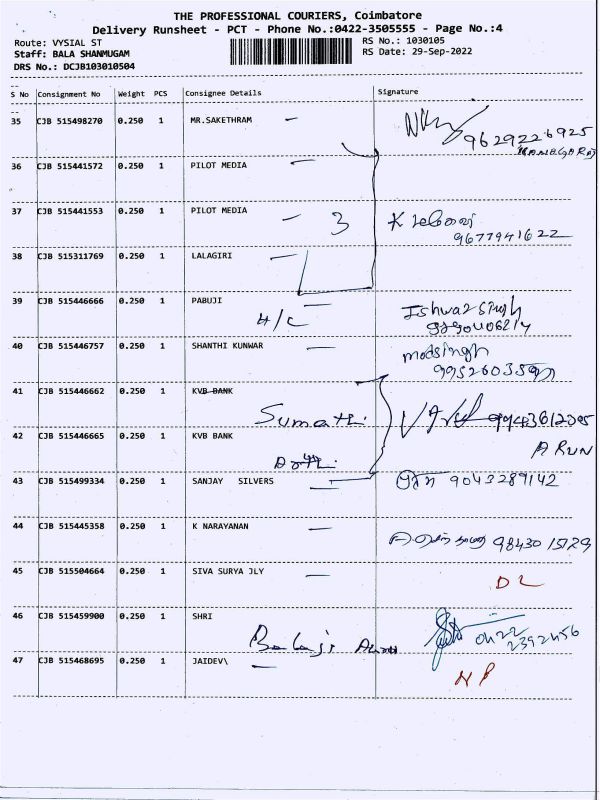 THE PROFESSIONAL COURIERS, Coimbatore
Delivery Runsheet - PCT - Phone No.:0422-3505555 - Page No.:4
Route: VYSIAL ST
RS No.: 1030105
Staff: BALA SHANMUGAM
RS Date: 29-Sep-2022
DRS No.: DCJB103010504
S No Consignment No Weight PCS Consignee Details Signature
35 CJB 515498270 0.250 1 MR.SAKETHRAM
9629226925
36 CJB 515441572 0.250 1 PILOT MEDIA
37 CJB 515441553 0.250 1 PILOT MEDIA
3
9677941622
38 CJB 515311769 0.250 1 LALAGIRI
39 CJB 515446666 0.250 1 PABUJI
H/C
Ishwar singh
40 CJB 515446757 0.250 1 SHANTHI KUNWAR
modsingh
41 CJB 515446662 0.250 1 KVB BANK
Sumathi
42 CJB 515446665 0.250 1 KVB BANK
ARUN
43 CJB 515499334 0.250 1 SANJAY SILVERS
9043289142
44 CJB 515445358 0.250 1 K NARAYANAN
98430 15729
45 CJB 515504664 0.250 1 SIVA SURYA JLY
DL
46 CJB 515459900 0.250 1 SHRI
Balaji
0422
2392456
47 CJB 515468695 0.250 1 JAIDEV\
NP